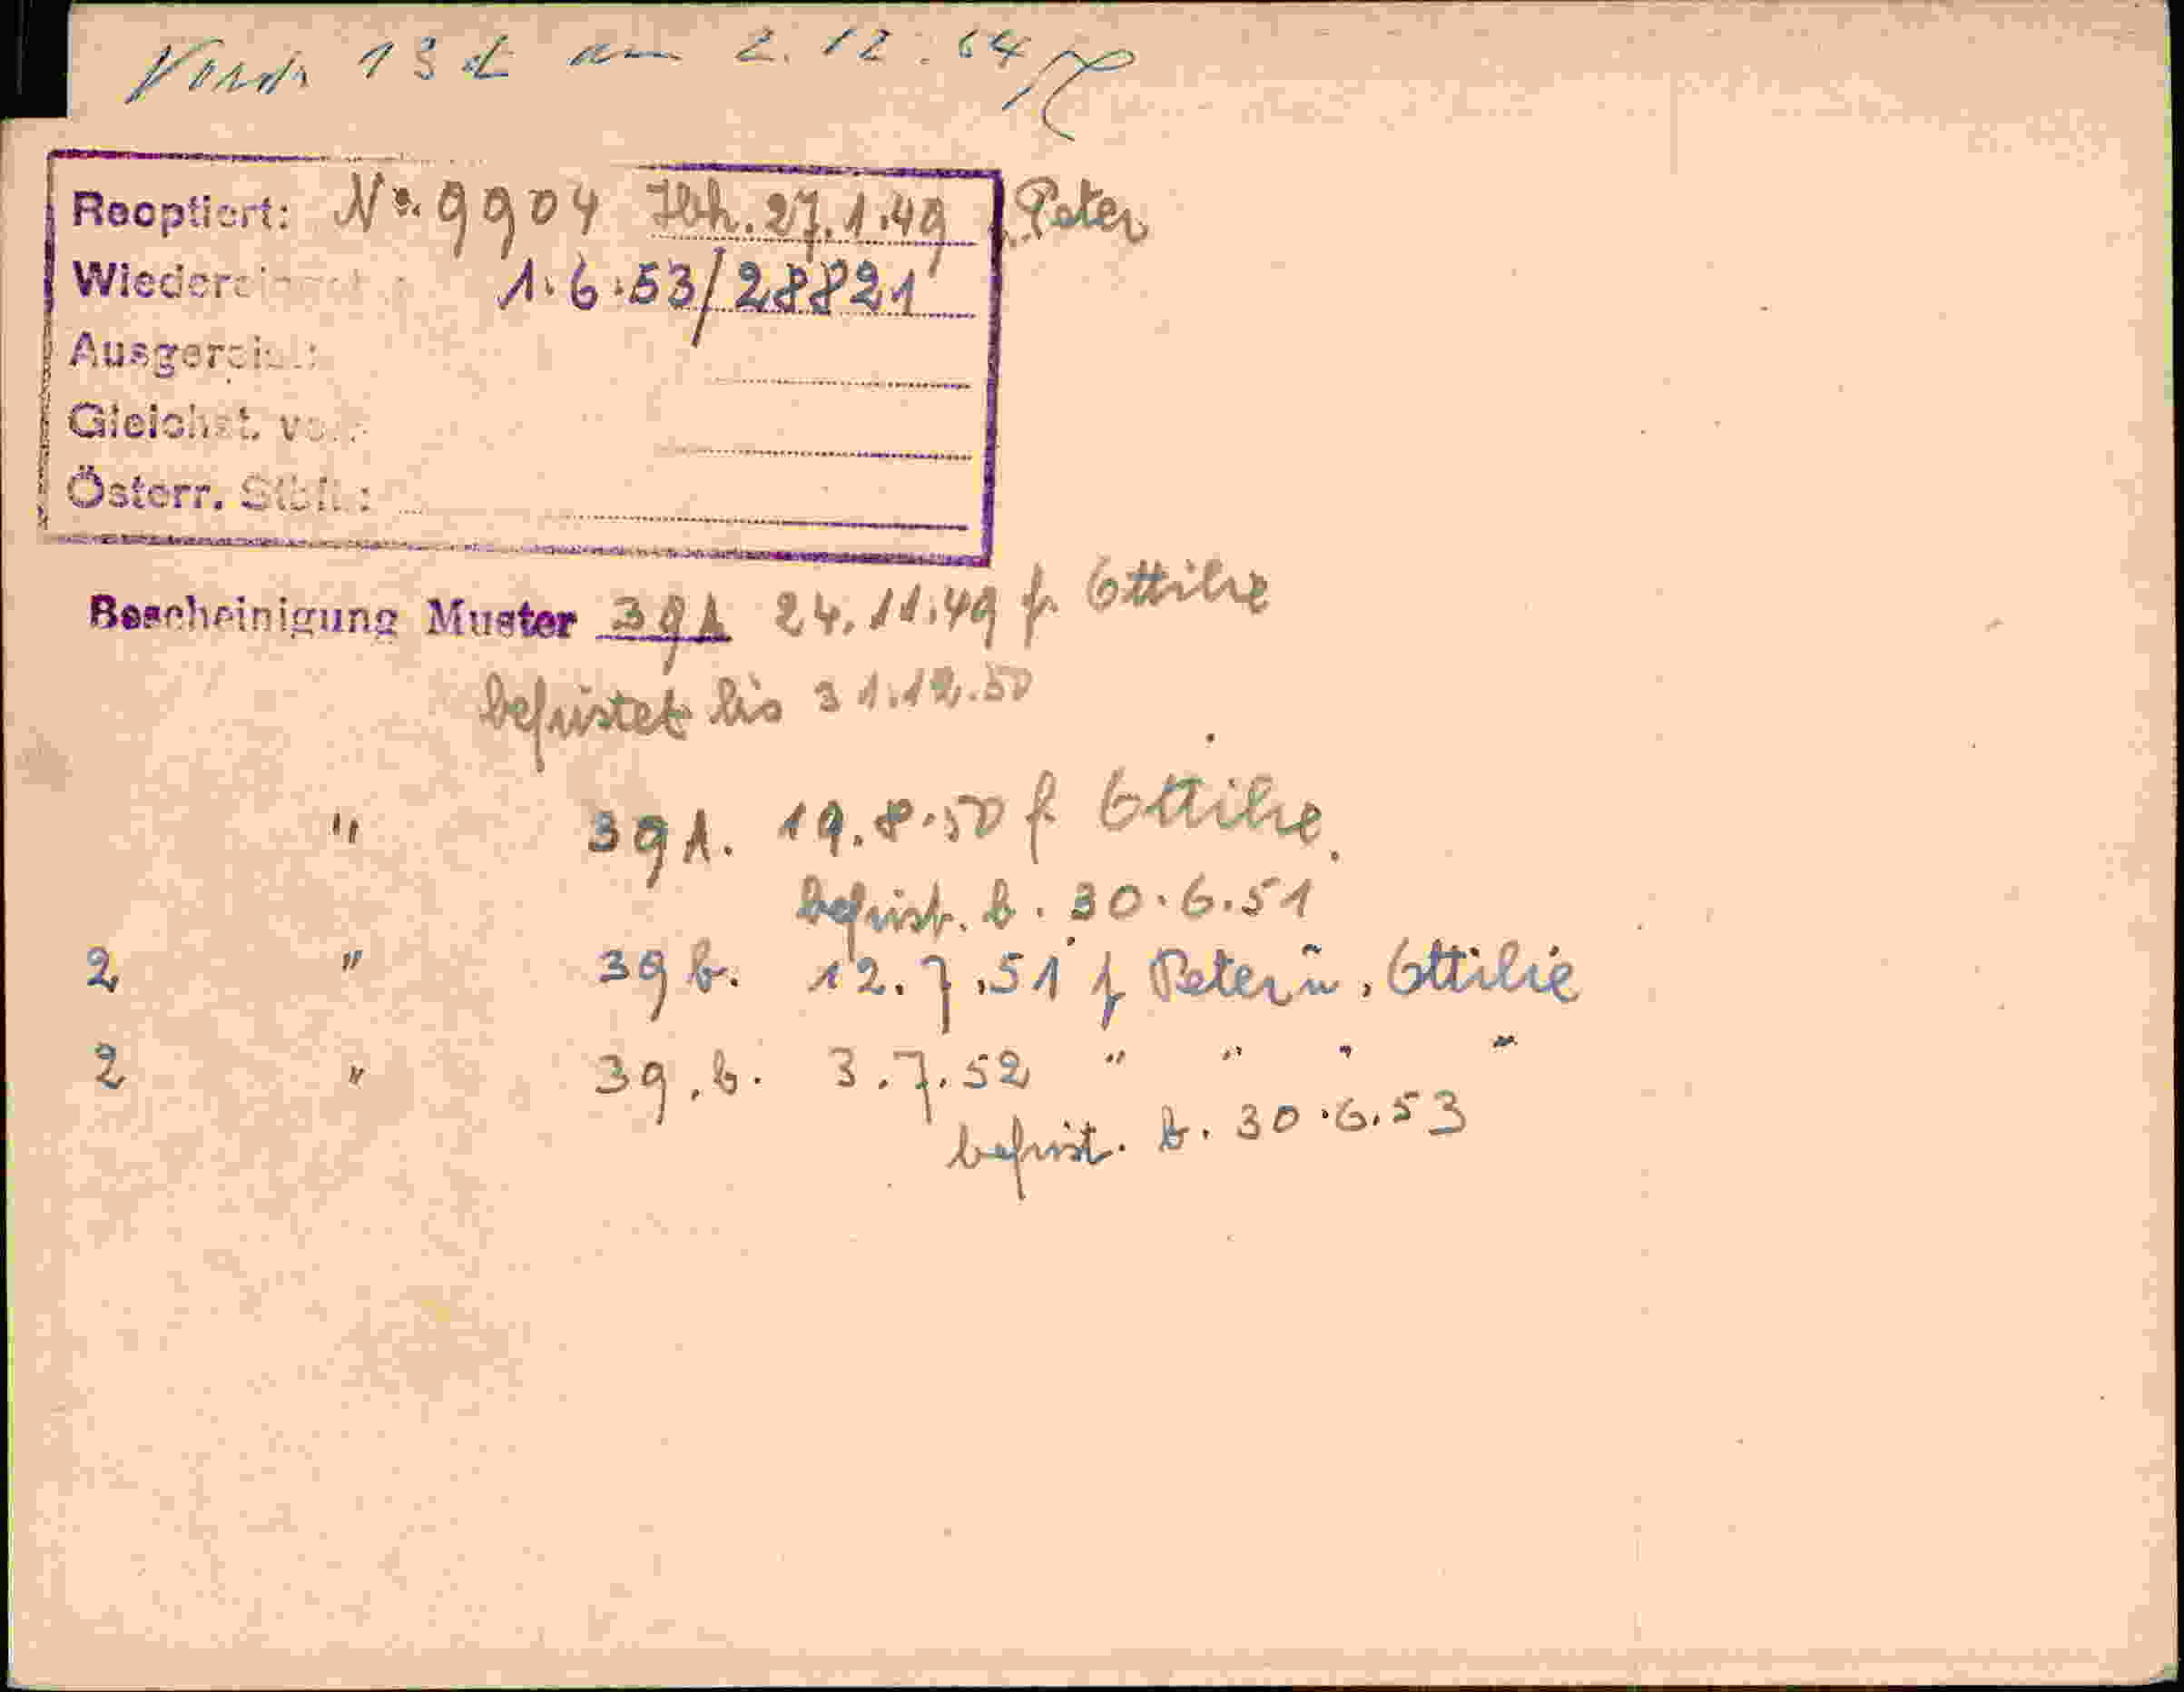 13 d am 2.12.54
Reoptiert: No. 9904 Ibk. 27.1.49 Peter
1.6.53/28821
Gleichst. v.
Österr. Stbft.:
Bescheinigung Muster 391 24.11.49 f. Ottilie
befristet bis 31.12.50
" 391. 19.8.50 f. Ottilie.
befrist. b. 30.6.51
2 " 39 b. 12.7.51 f Peter u. Ottilie
2 " 39.b. 3.7.52 " " " "
befrist. b. 30.6.53